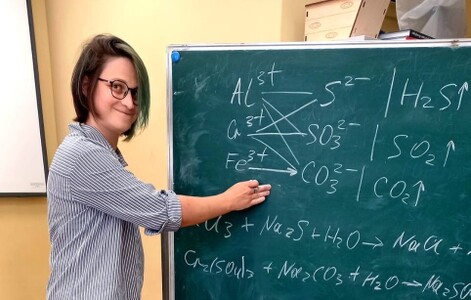 Al³⁺ S²⁻ | H₂S↑
Cr³⁺ SO₃²⁻ | SO₂↑
Fe³⁺ → CO₃²⁻ | CO₂↑
Cl₃ + Na₂S + H₂O → NaCl +
Cr₂(SO₄)₃ + Na₂CO₃ + H₂O → Na₂SO